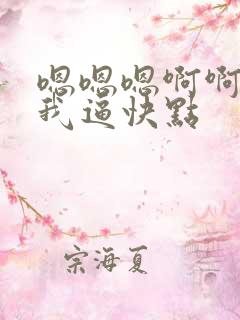 嗯嗯嗯啊啊
我逼快點
宗海夏